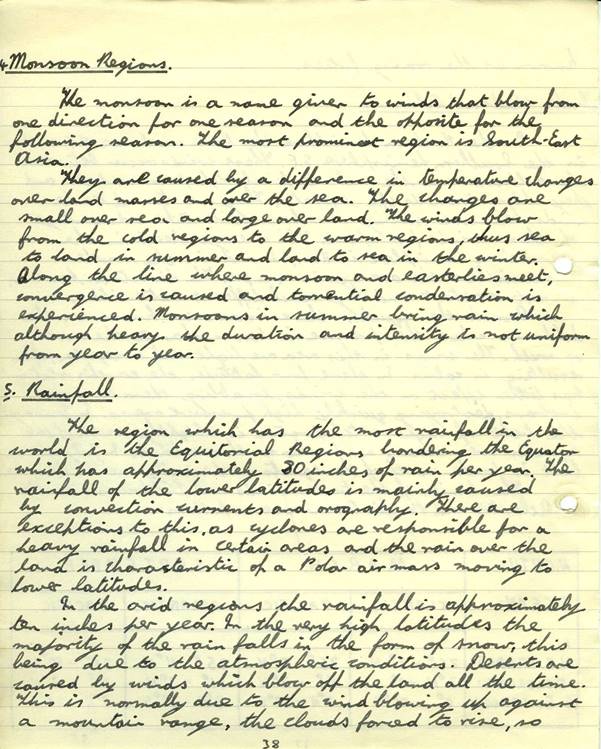 4. Monsoon Regions.
The monsoon is a name given to winds that blow from
one direction for one season and the opposite for the
following season. The most prominent region is South-East
Asia.
They are caused by a difference in temperature changes
over land masses and over the sea. The changes are
small over sea and large over land. The winds blow
from the cold regions to the warm regions, thus sea
to land in summer and land to sea in the winter.
Along the line where monsoon and easterlies meet,
convergence is caused and torrential condensation is
experienced. Monsoons in summer bring rain which
although heavy the duration and intensity is not uniform
from year to year.
5. Rainfall.
The region which has the most rainfall in the
world is the Equitorial Regions bordering the Equator
which has approximately 80 inches of rain per year. The
rainfall of the lower latitudes is mainly caused
by convection currents and orography. There are
exceptions to this, as cyclones are responsible for a
heavy rainfall in certain areas and the rain over the
land is characteristic of a Polar air mass moving to
lower latitudes.
In the arid regions the rainfall is approximately
ten inches per year. In the very high latitudes the
majority of the rain falls in the form of snow, this
being due to the atmospheric conditions. Deserts are
caused by winds which blow off the land all the time.
This is normally due to the wind blowing up against
a mountain range, the clouds forced to rise, so
38